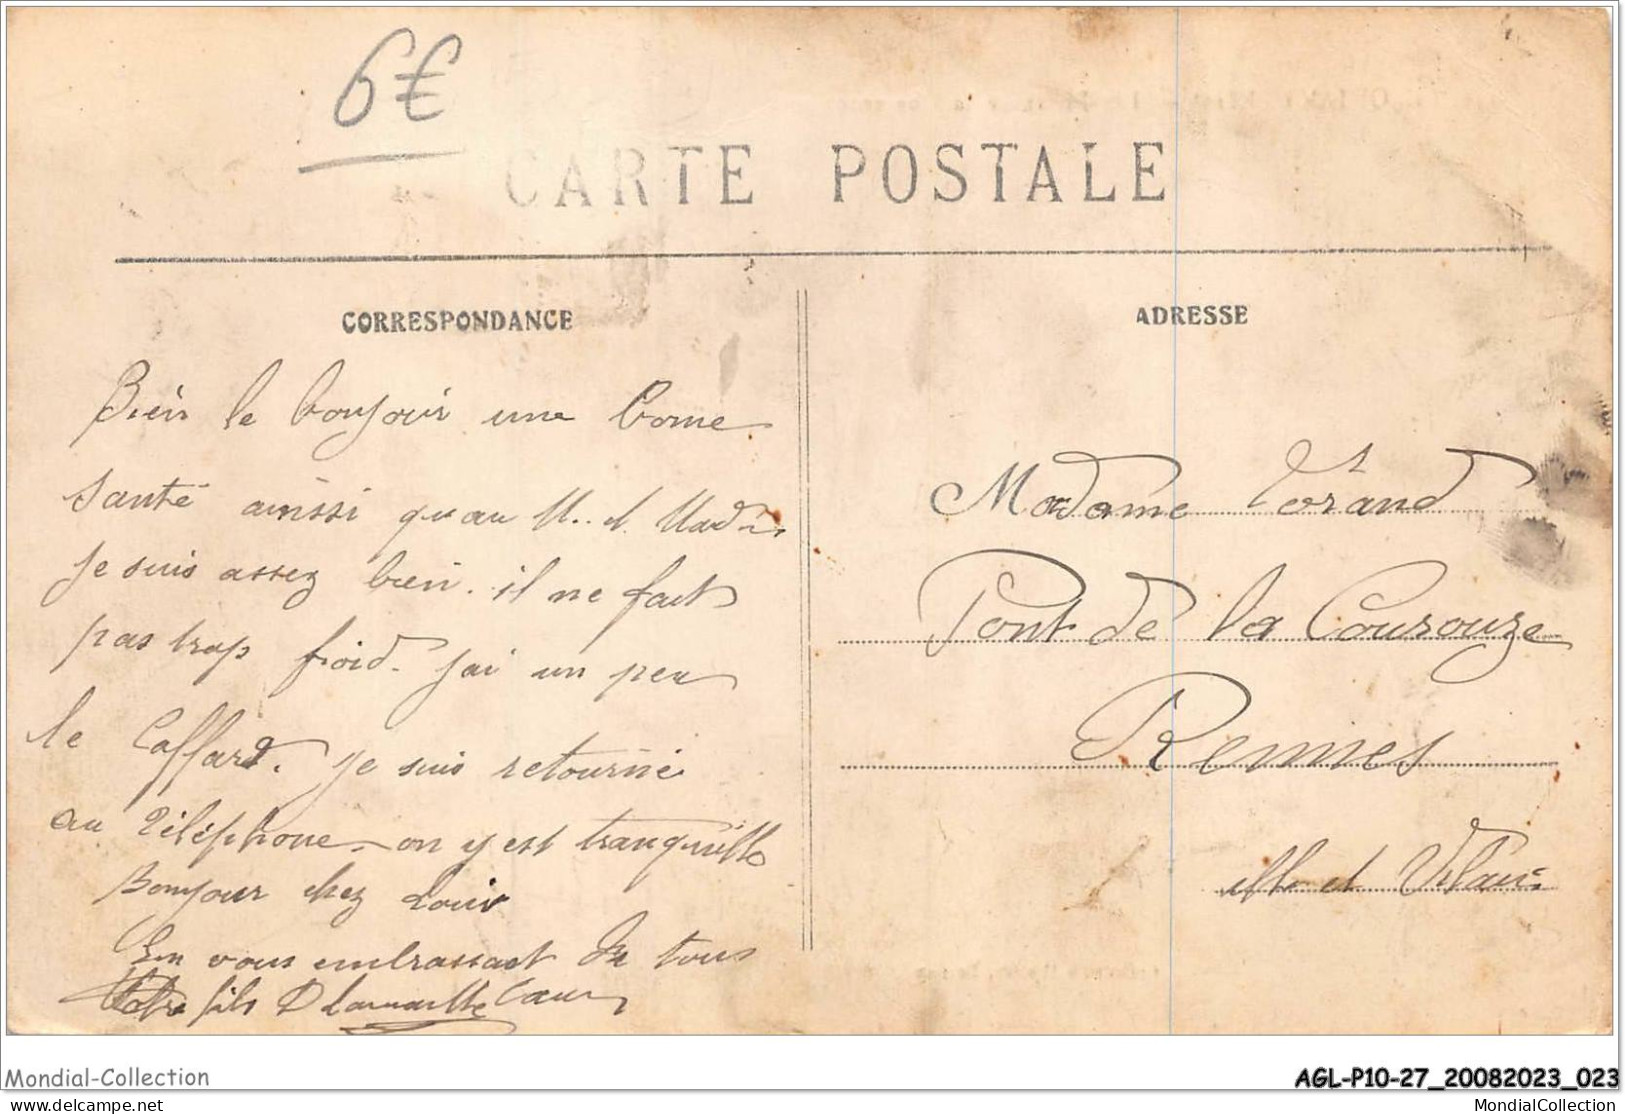 6€
CARTE POSTALE
CORRESPONDANCE
Bien le bonjour une bonne
santé ainssi qu'au M. et Mad
je suis assez bien. il ne fait
pas trop froid. jai un peu
le Caffard. je suis retourné
au téléphone on y est tranquille
Bonjour chez Louis
En vous embrassant de tous
Votre fils Cœur
ADRESSE
Madame
Pont de la Courouze
Rennes
ille et Vilaine
Mondial-Collection
AGL-P10-27_20082023_023
delcampe.net
MondialCollection